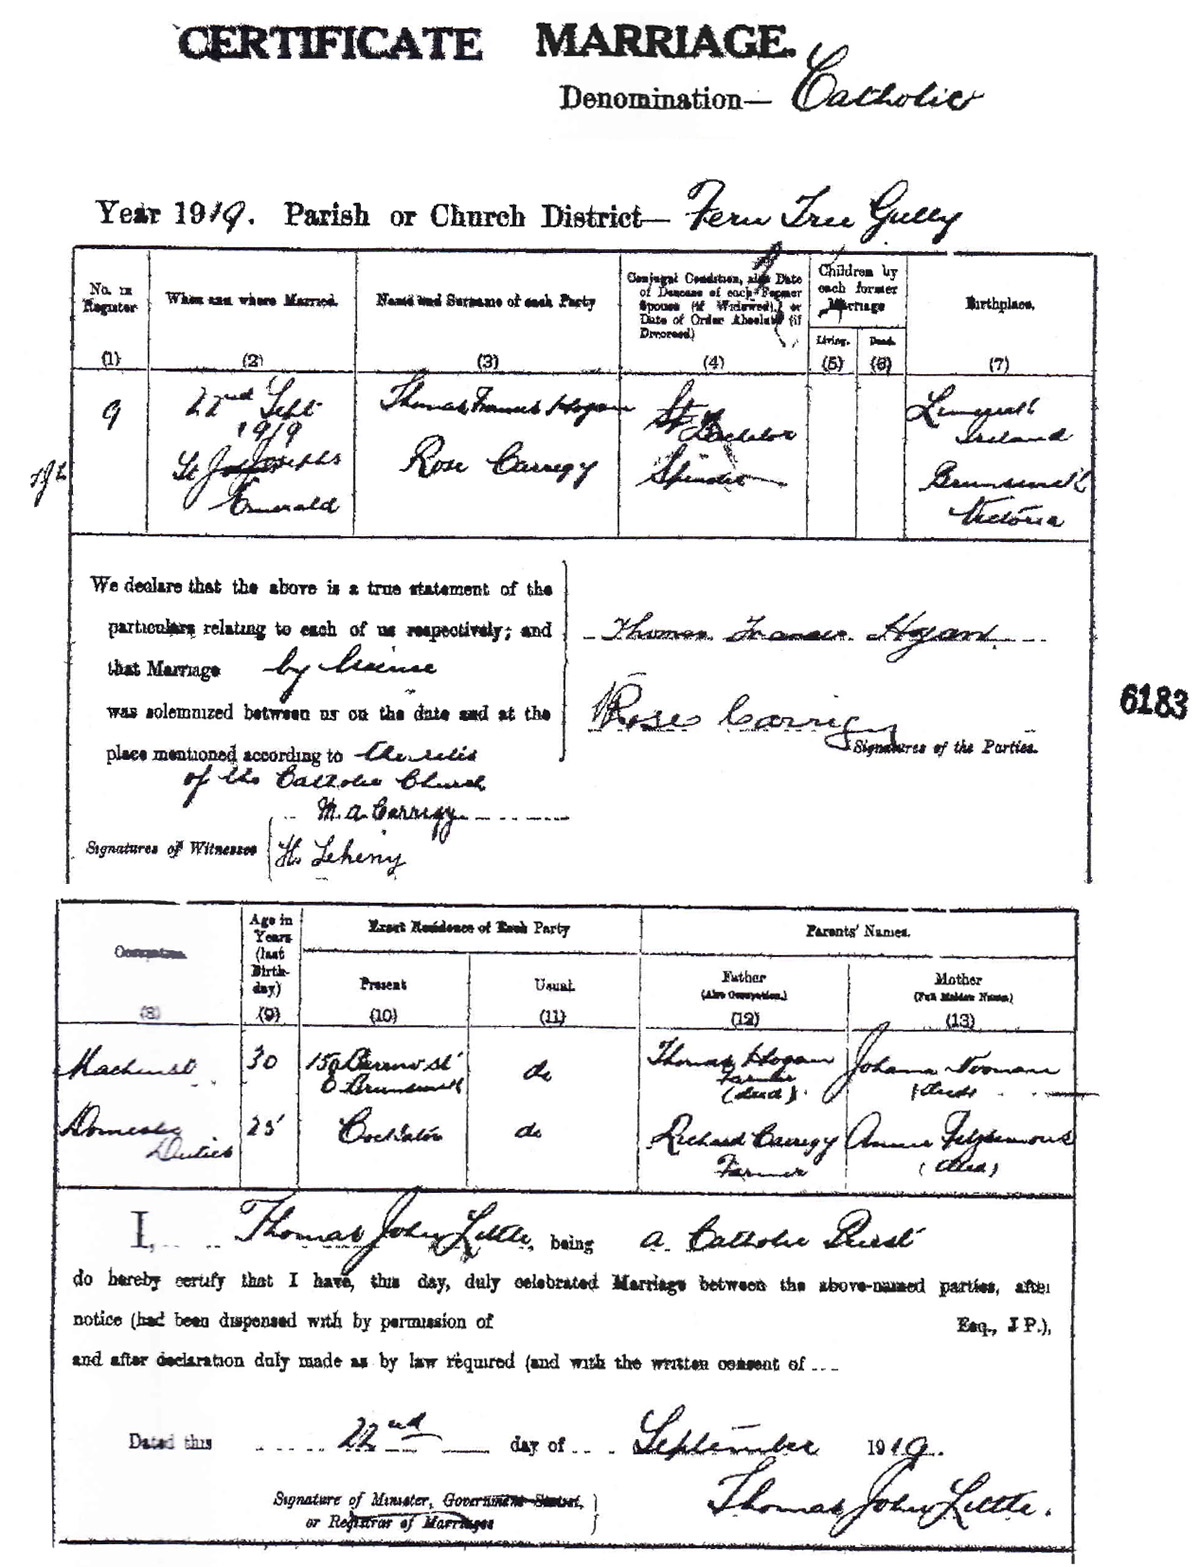 CERTIFICATE MARRIAGE.
Denomination— Catholic
Year 1919. Parish or Church District— Fern Tree Gully
No. in Register
(1)
When and where Married.
(2)
Name and Surname of each Party
(3)
Conjugal Condition, also Date of Decease of each Former Spouse (if Widowed), or Date of Order Absolute (if Divorced)
(4)
Children by each former Marriage
Living.
(5)
Dead.
(6)
Birthplace.
(7)
9
22nd Sept
1919
St Josephs
Emerald
Thomas Francis Hogan
Bachelor
Limerick
Ireland
Rose Carrigy
Spinster
Brunswick
Victoria
We declare that the above is a true statement of the
particulars relating to each of us respectively; and
that Marriage by license
was solemnized between us on the date and at the
place mentioned according to the rites
of the Catholic Church
Thomas Francis Hogan
Rose Carrigy
Signatures of the Parties.
6183
M. A. Carrigy
Signatures of Witnesses
H. Leheny
Occupation.
(8)
Age in Years (last Birth-day)
(9)
Exact Residence of Each Party
Present
(10)
Usual.
(11)
Parents' Names.
Father
(Also Occupation.)
(12)
Mother
(Full Maiden Name.)
(13)
Machinist
30
Brunswick
do
Thomas Hogan
Farmer
(dead)
Johanna Noonan
(dead)
Domestic
Duties
25
Cockatoo
do
Richard Carrigy
Farmer
Annie Fitzsimons
(dead)
I, Thomas John Little, being a Catholic Priest
do hereby certify that I have, this day, duly celebrated Marriage between the above-named parties, after
notice (had been dispensed with by permission of Esq., J P.),
and after declaration duly made as by law required (and with the written consent of
Dated this 22nd day of September 1919.
Signature of Minister, Government Statist,
or Registrar of Marriages
Thomas John Little.